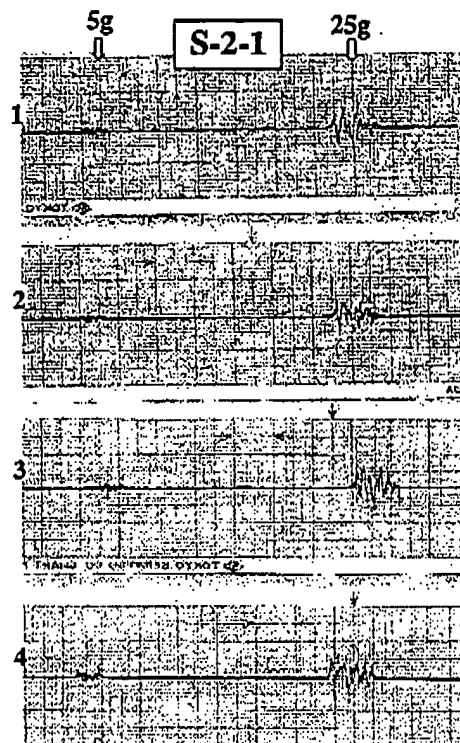 5g S-2-1 25g
1
2
3
4